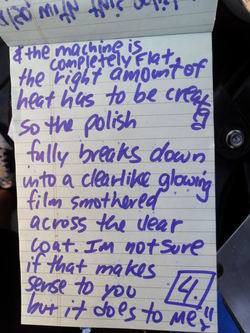 & the machine is
completely flat,
the right amount of
heat has to be created
so the polish
fully breaks down
into a clearlike glowing
film smothered
across the clear
coat. I'm not sure
if that makes
sense to you
but it does to me!!
4.